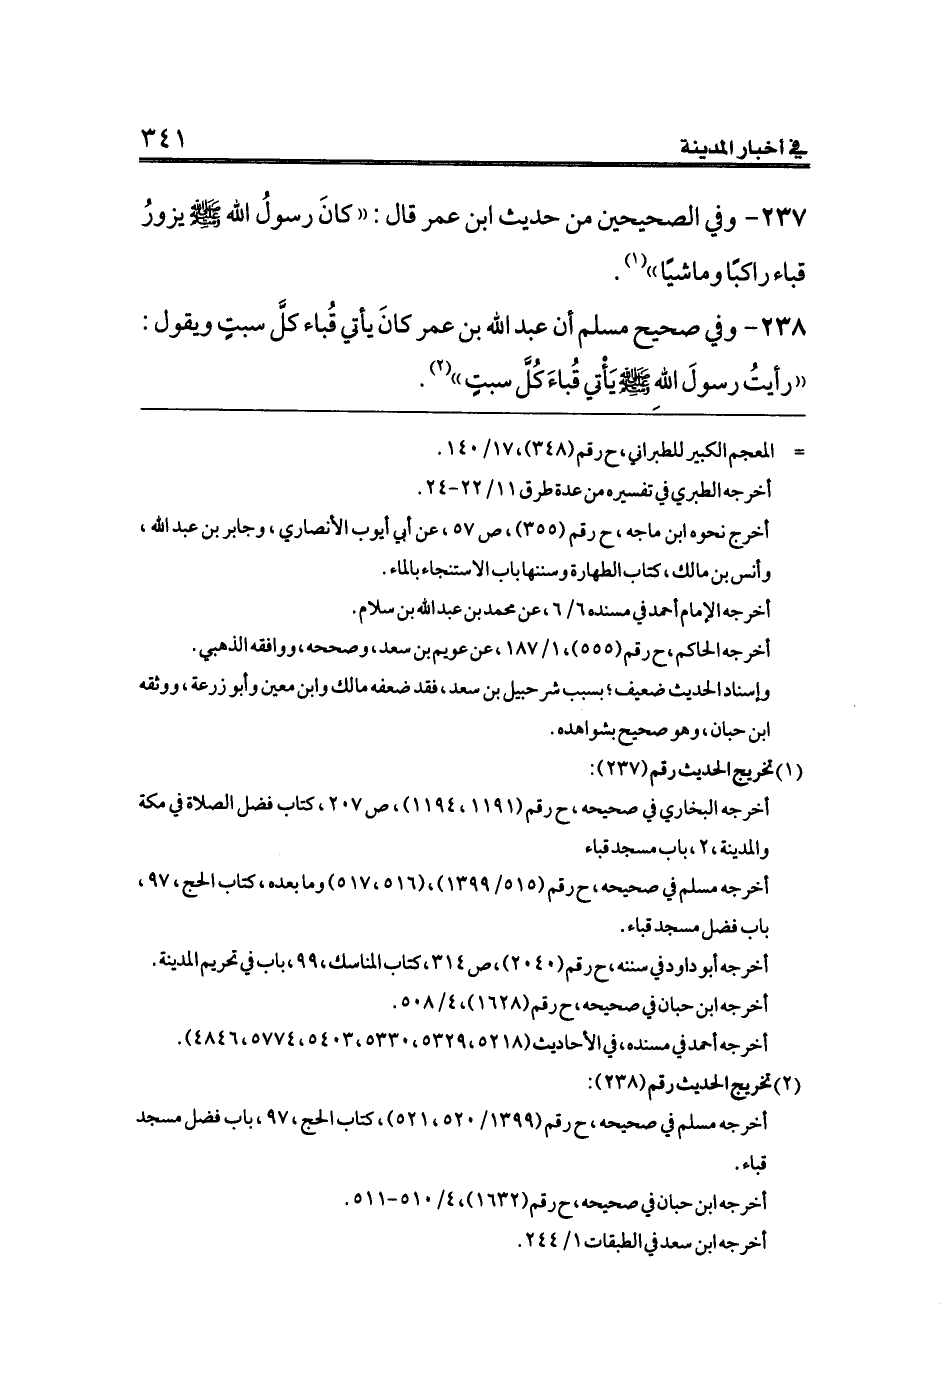 في أخبار المدينة ٣٤١
٢٣٧- وفي الصحيحين من حديث ابن عمر قال : «كانَ رسولُ الله ﷺ يزورُ
قباء راكبًا وماشيًا»(١).
٢٣٨- وفي صحيح مسلم أن عبد الله بن عمر كانَ يأتي قُباء كلَّ سبتٍ ويقول :
«رأيتُ رسولَ اللهِ ﷺ يَأْتي قُباءَ كُلَّ سبتٍ»(٢).
= المعجم الكبير للطبراني، ح رقم (٣٤٨)، ١٧/ ١٤٠.
أخرجه الطبري في تفسيره من عدة طرق ١١/ ٢٢-٢٤.
أخرج نحوه ابن ماجه ، ح رقم (٣٥٥)، ص ٥٧ ، عن أبي أيوب الأنصاري ، وجابر بن عبد الله ،
وأنس بن مالك، كتاب الطهارة وسننها باب الاستنجاء بالماء.
أخرجه الإمام أحمد في مسنده ٦/ ٦ ، عن محمد بن عبد الله بن سلام.
أخرجه الحاكم، ح رقم (٥٥٥)، ١/ ١٨٧ ، عن عويم بن سعد، وصححه، ووافقه الذهبي.
وإسناد الحديث ضعيف؛ بسبب شرحبيل بن سعد ، فقد ضعفه مالك وابن معين وأبو زرعة ، ووثقه
ابن حبان، وهو صحيح بشواهده.
(١) تخريج الحديث رقم (٢٣٧):
أخرجه البخاري في صحيحه ، ح رقم (١١٩١ ، ١١٩٤)، ص ٢٠٧ ، كتاب فضل الصلاة في مكة
والمدينة ، ٢ ، باب مسجد قباء
أخرجه مسلم في صحيحه، ح رقم (٥١٥/ ١٣٩٩)، (٥١٦، ٥١٧) وما بعده، كتاب الحج، ٩٧ ،
باب فضل مسجد قباء.
أخرجه أبو داود في سننه، ح رقم (٢٠٤٠)، ص ٣١٤، كتاب المناسك، ٩٩، باب في تحريم المدينة.
أخرجه ابن حبان في صحيحه، ح رقم (١٦٢٨)، ٤/ ٥٠٨.
أخرجه أحمد في مسنده، في الأحاديث (٥٢١٨، ٥٣٢٩، ٥٣٣٠، ٥٤٠٣، ٥٧٧٤، ٤٨٤٦).
(٢) تخريج الحديث رقم (٢٣٨):
أخرجه مسلم في صحيحه ، ح رقم (١٣٩٩/ ٥٢٠، ٥٢١)، كتاب الحج ، ٩٧ ، باب فضل مسجد
قباء.
أخرجه ابن حبان في صحيحه، ح رقم (١٦٣٢)، ٤/ ٥١٠-٥١١.
أخرجه ابن سعد في الطبقات ١/ ٢٤٤.